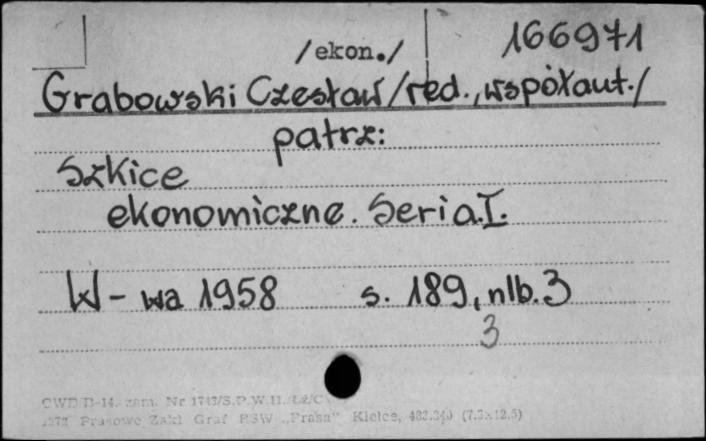 /ekon./ 166971
Grabowski Czesław/red.,współaut./
patrz:
Szkice
ekonomiczne. Seria.I.
W-wa 1958 s. 189, nlb.3
3
CWD/D-14. zam. Nr 1743/S.P.W.H.
Prasowe Zakł Graf RSW „Prasa” Kielce, (7.3x12.5)